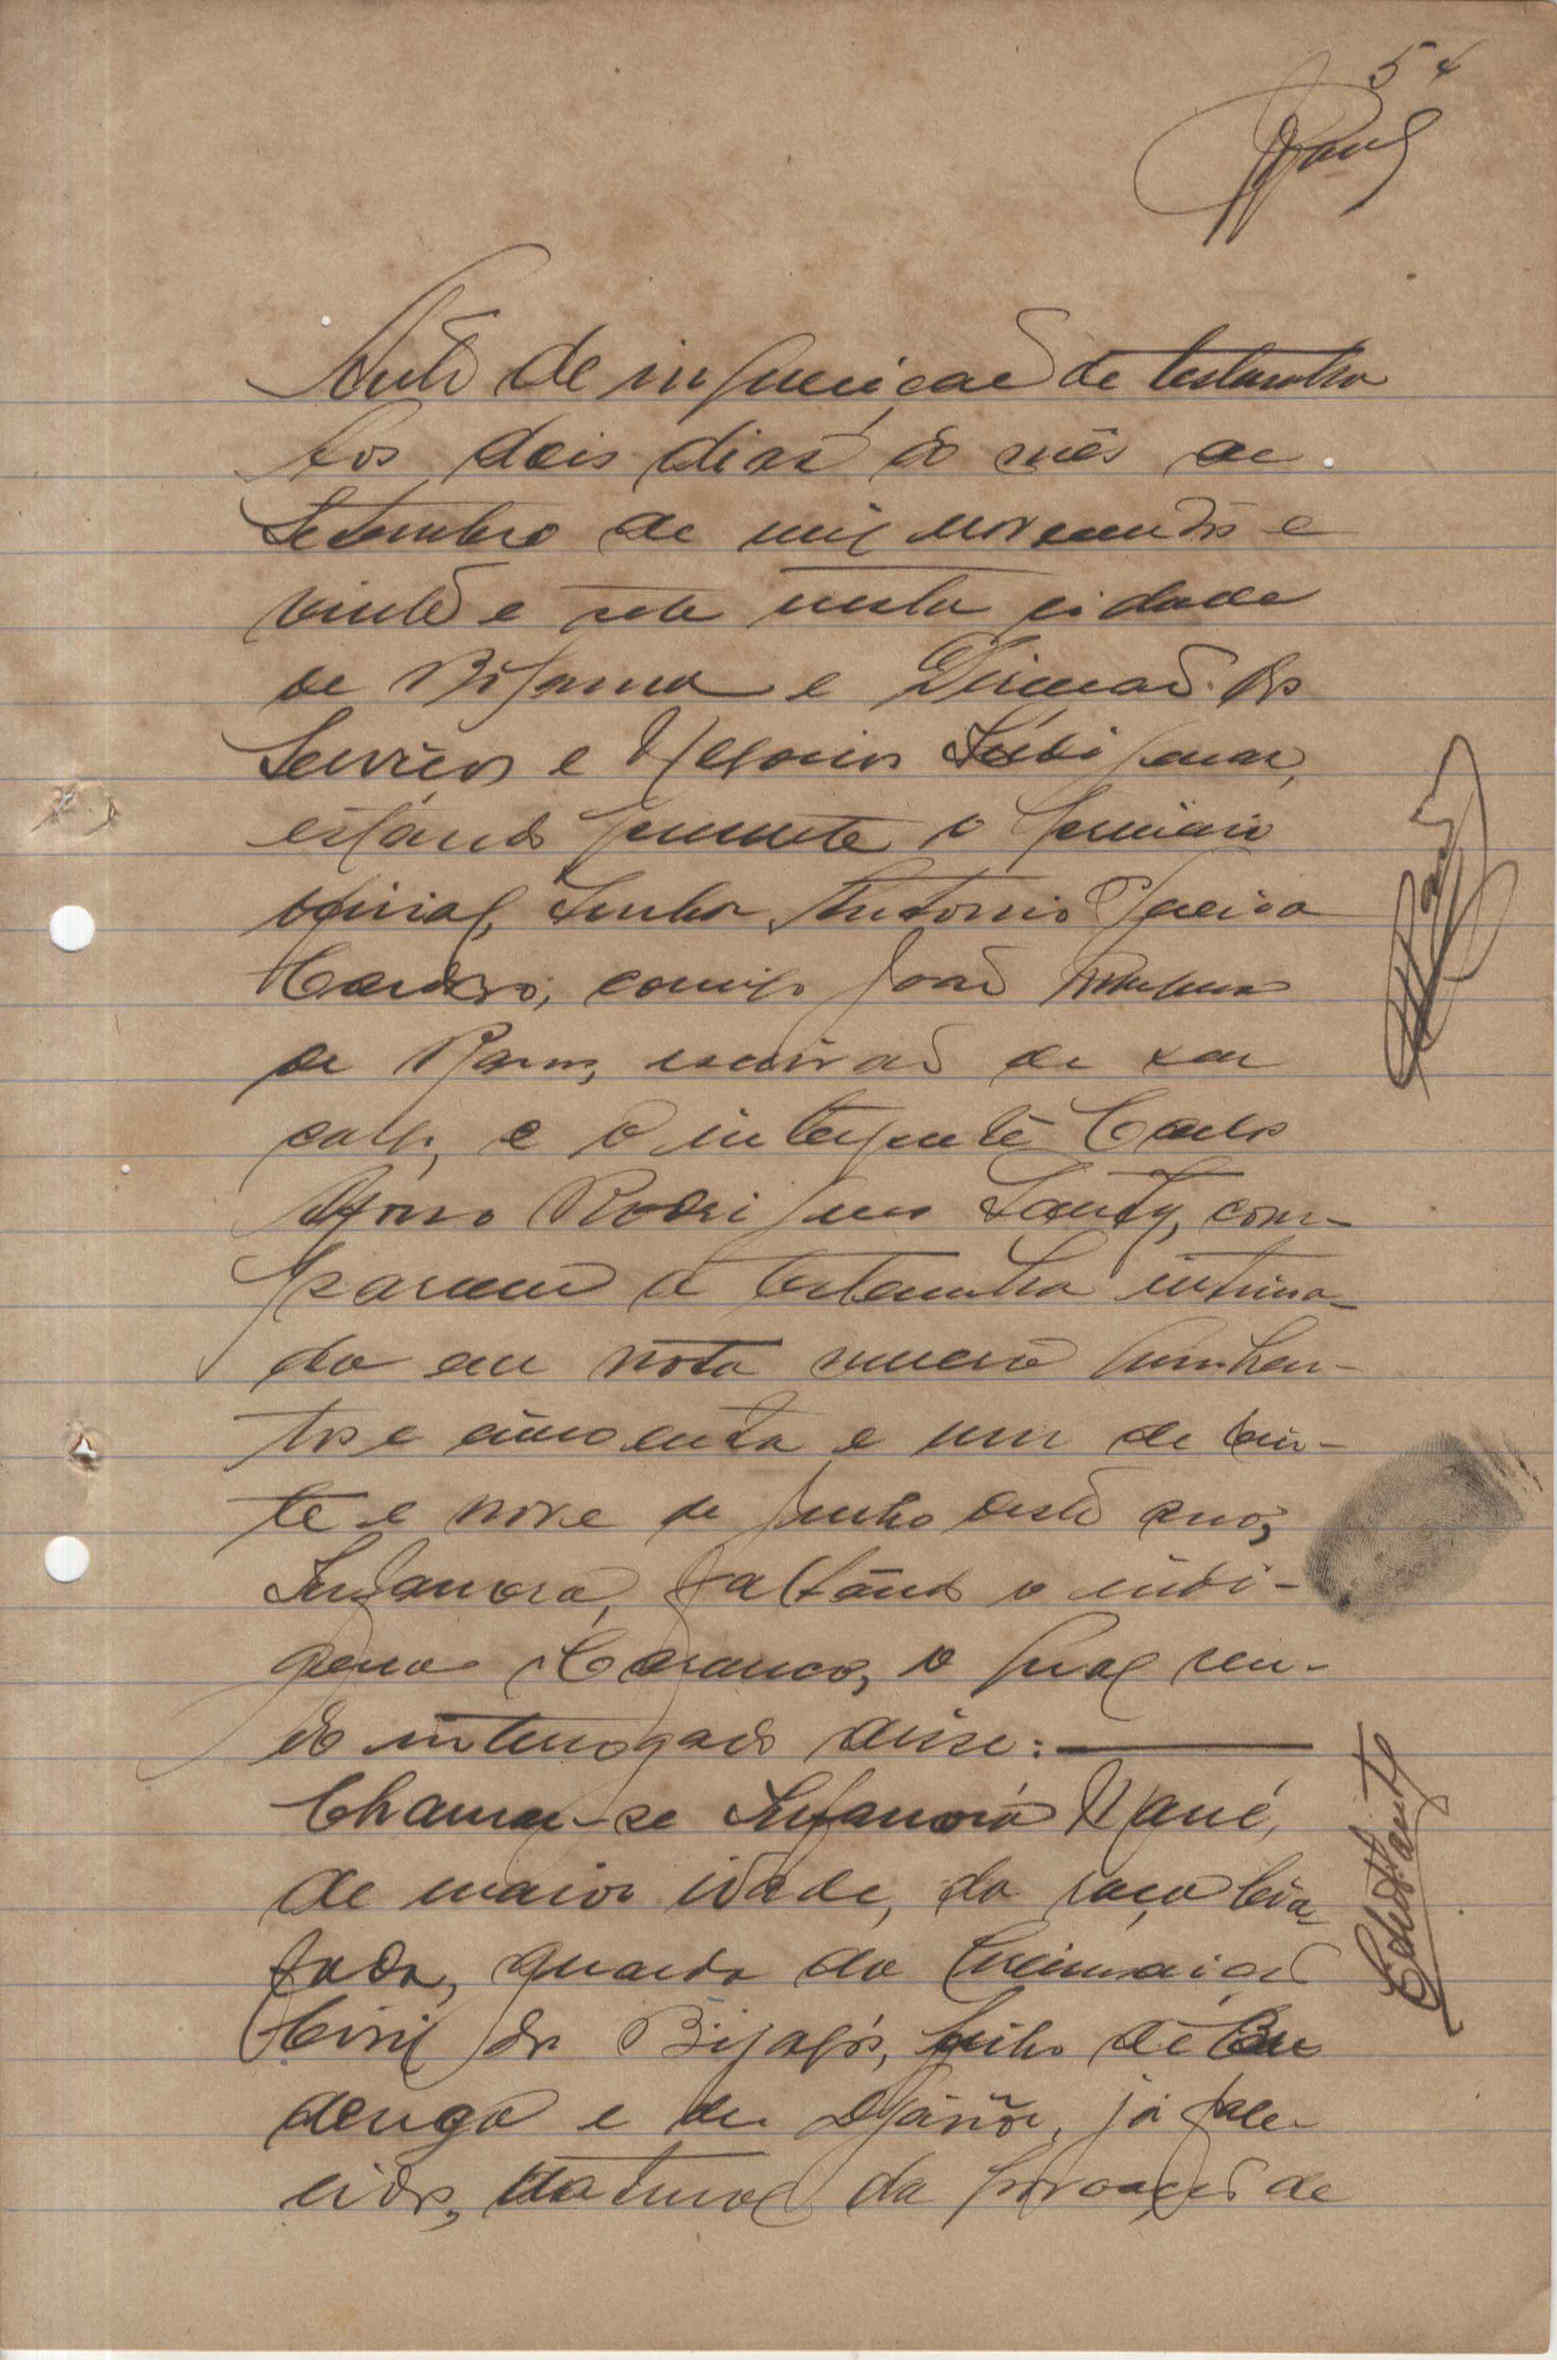 54
Auto de inquirição de testemunha
Aos dois dias do mês de
Setembro de mil novecentos e
vinte e sete nesta cidade
de Bolama e Direcção dos
Serviços e Negocios Indigenas,
estando presente o primeiro
oficial, Senhor Antonio Pereira
Cardoso, comigo João
de Barros, escrivão de seu
cargo, e o interprete Carlos
Afonso Rodrigues Santy, com-
pareceu a testemunha intima-
da em nota numero quinhen-
tos e cincoenta e um de vin-
te e nove de Junho deste ano,
faltando o indi-
gena o qual sen-
do interrogado disse:
Chamar-se Mané,
de maior idade, da raça bia-
fada, guarda da Circunscrição
Civil dos Bijagós, filho de
dengo e de já fale-
cidos, natural da povoação de